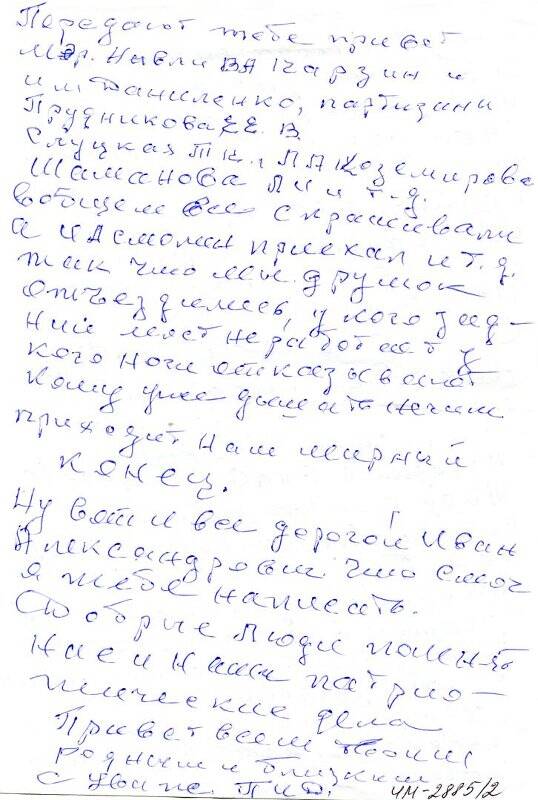 Передают тебе привет
Мэр. Навли ВА Чарзин и
им Даниленко, партизани
Прудникова ЕЕ. В
Слуцкая Т П Л А Коземирова
Шаманова Л и и т.д.
вобщем все спрашивали
а идемоман приехал и т.д.
так что мы. дружок
отъездились, у кого зад-
ний мост неработает у
кого ноги отказывают
кому уже дышать нечим
приходит нам мирный
конец.
Ну вот и все дорогой Иван
Александрович. Что смог
я тебе написать.
Добрые люди помн-ят
нас и наши патрио-
тические дела
Привет всем твоим
родным и близким
с уваже. П.И.Д.
ЧМ-2885/2